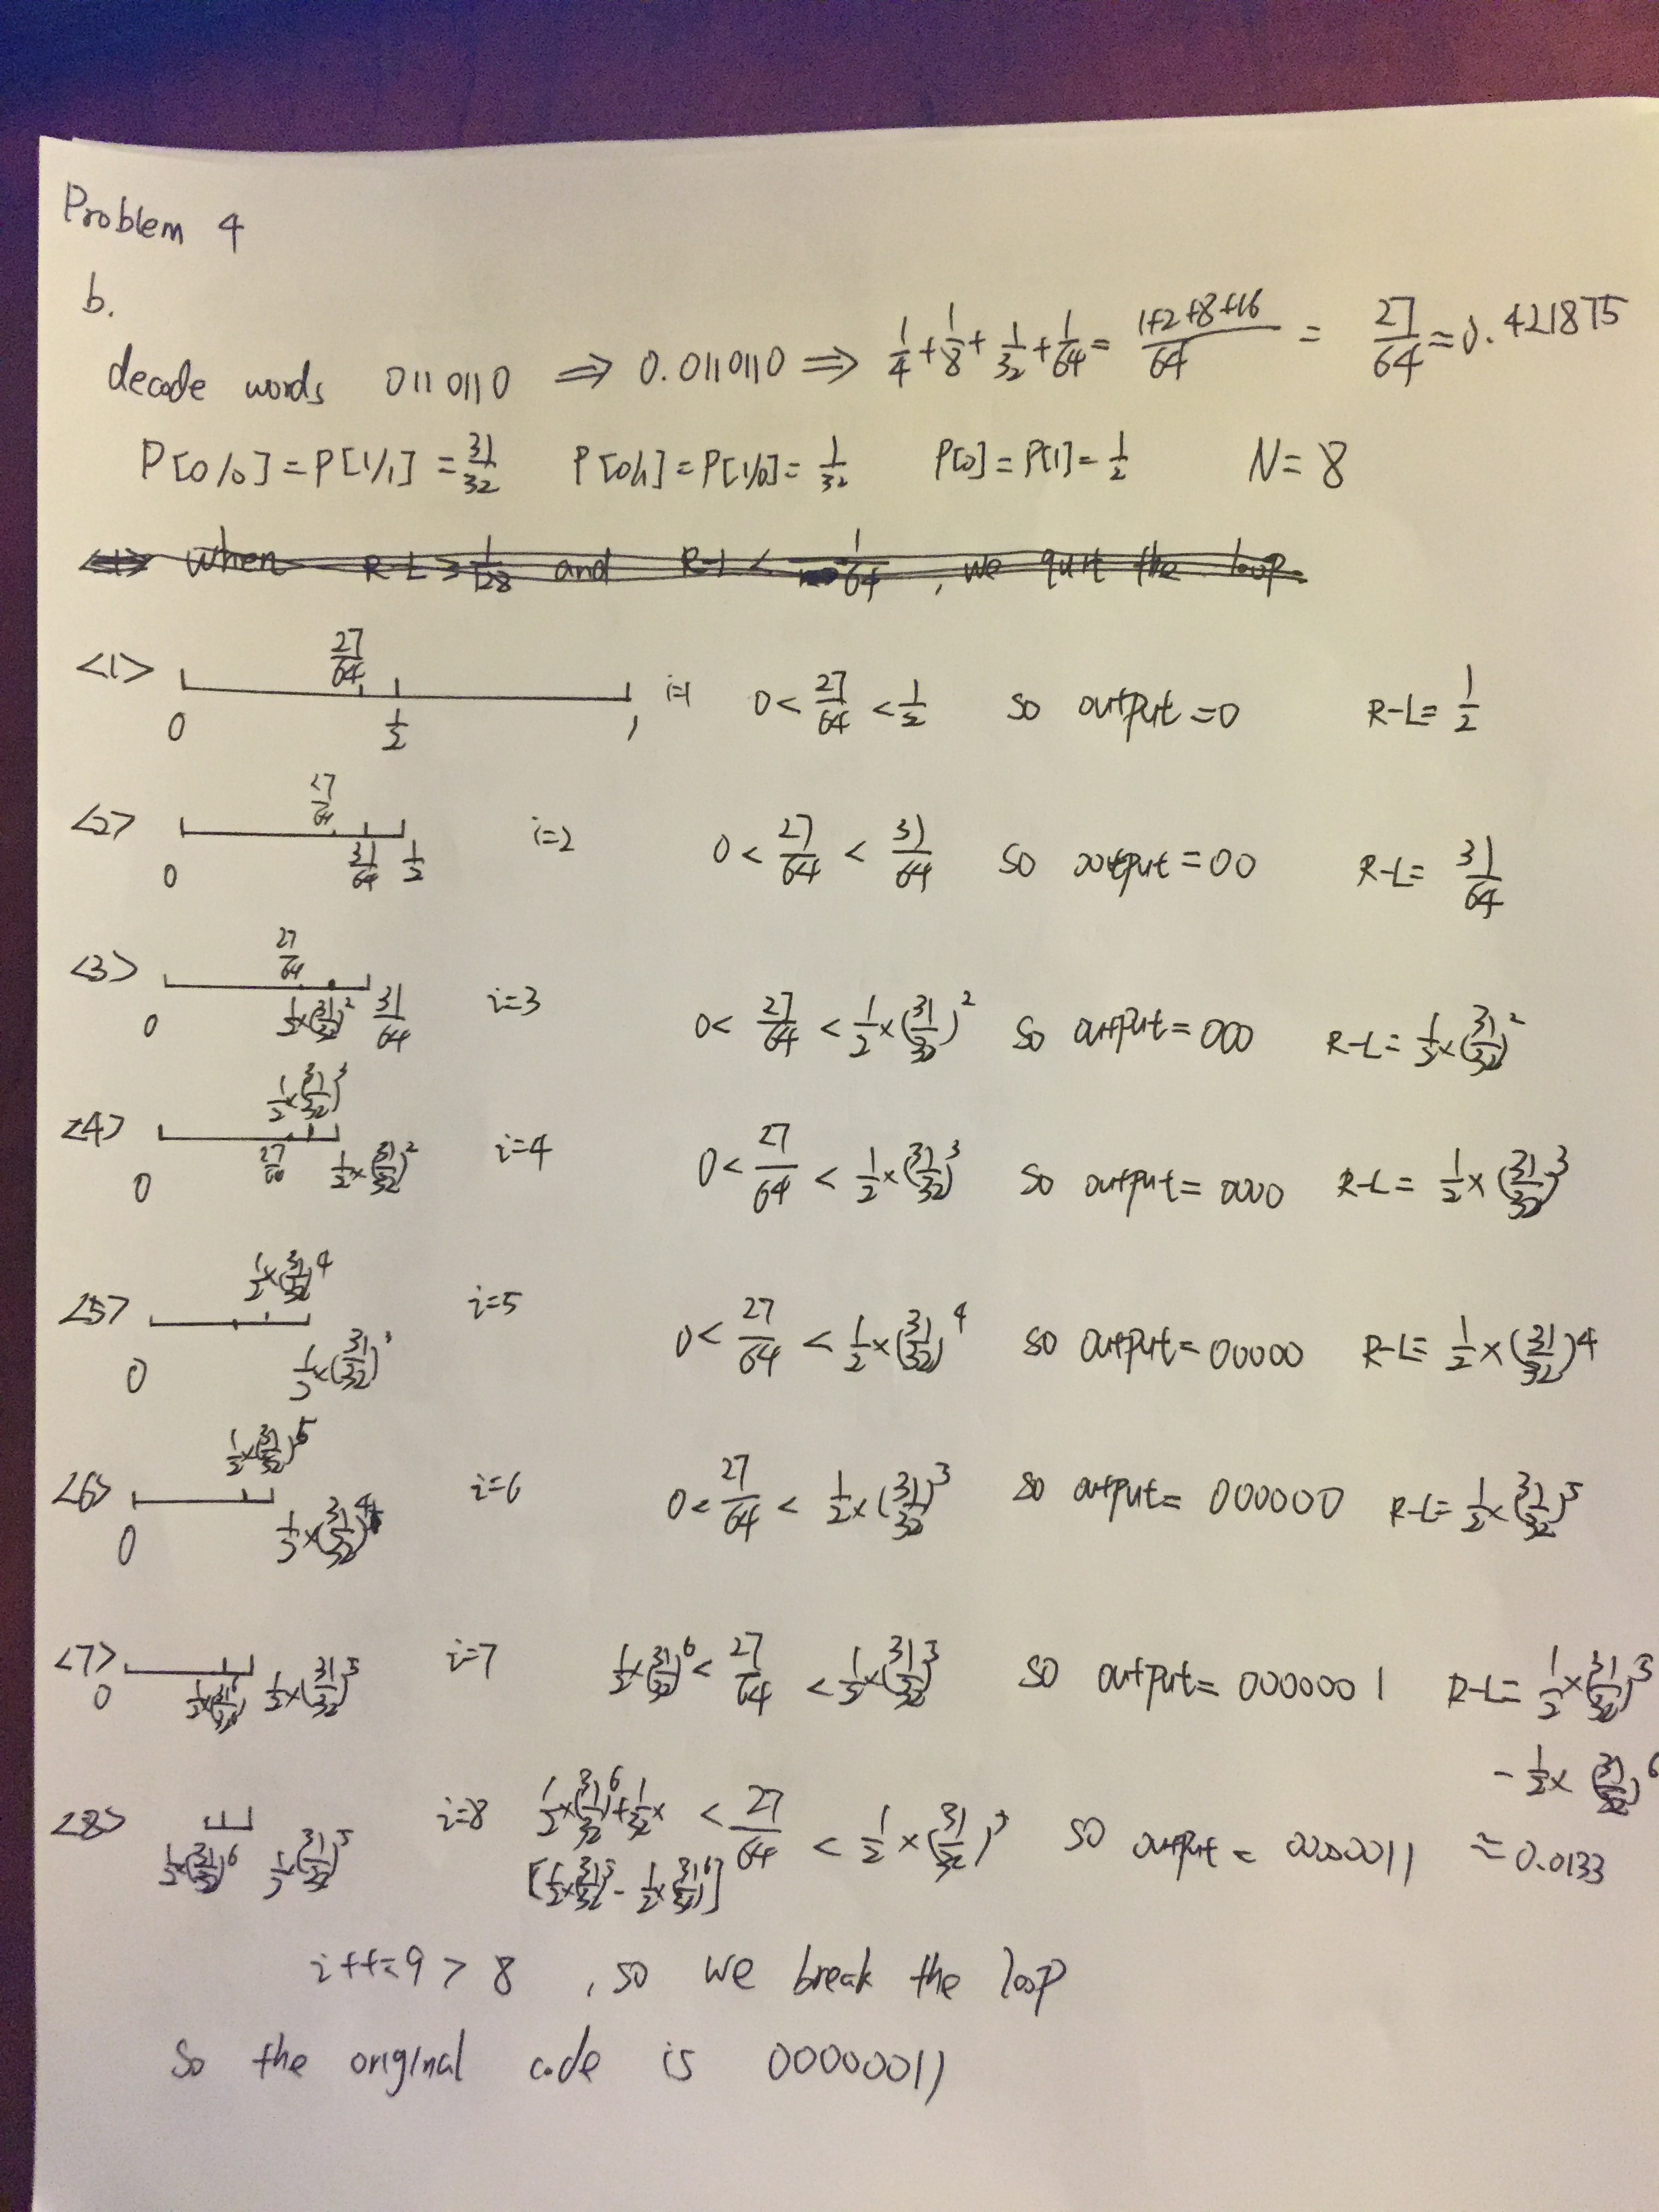 Problem 4
b.
decode words 0110110 ⇒ 0.0110110 ⇒ 1/4 + 1/8 + 1/32 + 1/64 = (1+2+8+16)/64 = 27/64 ≈ 0.421875
P[0/0] = P[1/1] = 31/32 P[0/1] = P[1/0] = 1/32 P[0] = P[1] = 1/2 N = 8
<1> when R-L ≥ 1/128 and R-L < 1/64, we quit the loop.
<1> 0 27/64 1/2 1 i=1 0 < 27/64 < 1/2 so output = 0 R-L = 1/2
<2> 0 27/64 31/64 1/2 i=2 0 < 27/64 < 31/64 so output = 00 R-L = 31/64
<3> 0 27/64 1/2×(31/32)^2 31/64 i=3 0 < 27/64 < 1/2×(31/32)^2 so output = 000 R-L = 1/2×(31/32)^2
<4> 0 27/64 1/2×(31/32)^3 1/2×(31/32)^2 i=4 0 < 27/64 < 1/2×(31/32)^3 so output = 0000 R-L = 1/2×(31/32)^3
<5> 0 1/2×(31/32)^4 1/2×(31/32)^3 i=5 0 < 27/64 < 1/2×(31/32)^4 so output = 00000 R-L = 1/2×(31/32)^4
<6> 0 1/2×(31/32)^5 1/2×(31/32)^4 i=6 0 < 27/64 < 1/2×(31/32)^3 so output = 000000 R-L = 1/2×(31/32)^5
<7> 0 1/2×(31/32)^6 1/2×(31/32)^5 i=7 1/2×(31/32)^6 < 27/64 < 1/2×(31/32)^3 so output = 0000001 R-L = 1/2×(31/32)^5
- 1/2×(31/32)^6
<8> 1/2×(31/32)^6 1/2×(31/32)^5 i=8 1/2×(31/32)^6 + 1/32× [1/2×(31/32)^5 - 1/2×(31/32)^6] < 27/64 < 1/2×(31/32)^5 so output = 00000011 ≈ 0.0133
i++=9 > 8 , so we break the loop
So the original code is 00000011